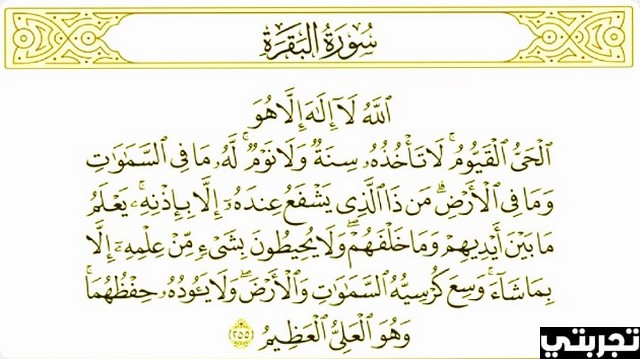 سُورَةُ البَقَرَةِ
ٱللَّهُ لَآ إِلَٰهَ إِلَّا هُوَ
ٱلْحَىُّ ٱلْقَيُّومُ ۚ لَا تَأْخُذُهُۥ سِنَةٌ وَلَا نَوْمٌ ۚ لَّهُۥ مَا فِى ٱلسَّمَٰوَٰتِ
وَمَا فِى ٱلْأَرْضِ ۗ مَن ذَا ٱلَّذِى يَشْفَعُ عِندَهُۥٓ إِلَّا بِإِذْنِهِۦ ۚ يَعْلَمُ
مَا بَيْنَ أَيْدِيهِمْ وَمَا خَلْفَهُمْ ۖ وَلَا يُحِيطُونَ بِشَىْءٍ مِّنْ عِلْمِهِۦٓ إِلَّا
بِمَا شَآءَ ۚ وَسِعَ كُرْسِيُّهُ ٱلسَّمَٰوَٰتِ وَٱلْأَرْضَ ۖ وَلَا يَـُٔودُهُۥ حِفْظُهُمَا ۚ
وَهُوَ ٱلْعَلِىُّ ٱلْعَظِيمُ ٢٥٥
تجربتي